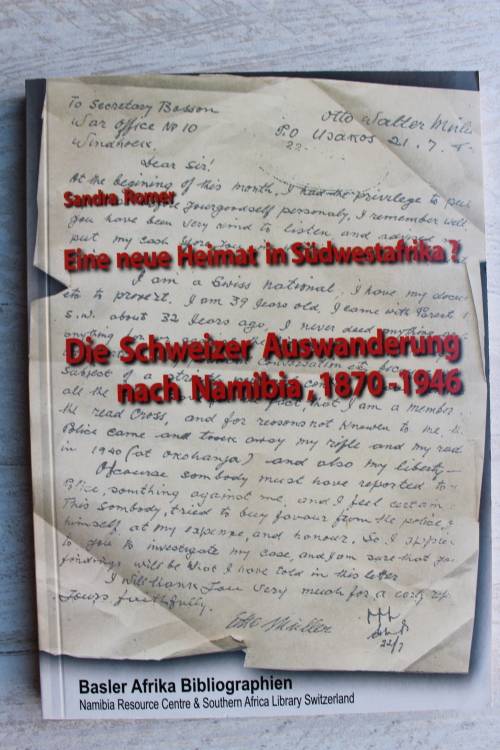 To Secretary Bosson
War Office No 10
Windhoek
Otto Walter Müller
P.O Usakos 21. 7.
22-
Dear Sir!
At the begining of this month. I had the privilege to
Sandra Romer
yourgoodself personaly, I remember well
you have been very kind to listen and
put my cash
Eine neue Heimat in Südwestafrika?
I am a Swiss National, I have my
to proxert. I am 39 Years old, I came with Parent
S.W. about 32 Years ago, I never deed anything
Die Schweizer Auswanderung
subject of a
nach Namibia, 1870-1946
all the fact, that I am a member
the read Cross, and for reasons not knowen to me, the
Police came and toock away my rifle and my
in 1940 (at Okahanja) and also my liberty—
Ofcourse sombody must have reported to
Police, somthing against me, and I feel certain
This sombody, tried to buy favour from the police,
himself, at my expense, and honour. So I
to you to investigate my case, and I am sure that
findings will be what I have told in this letter
I will thank You very much for a
Yours faithfully.
Otto Müller
22/7
Basler Afrika Bibliographien
Namibia Resource Centre & Southern Africa Library Switzerland